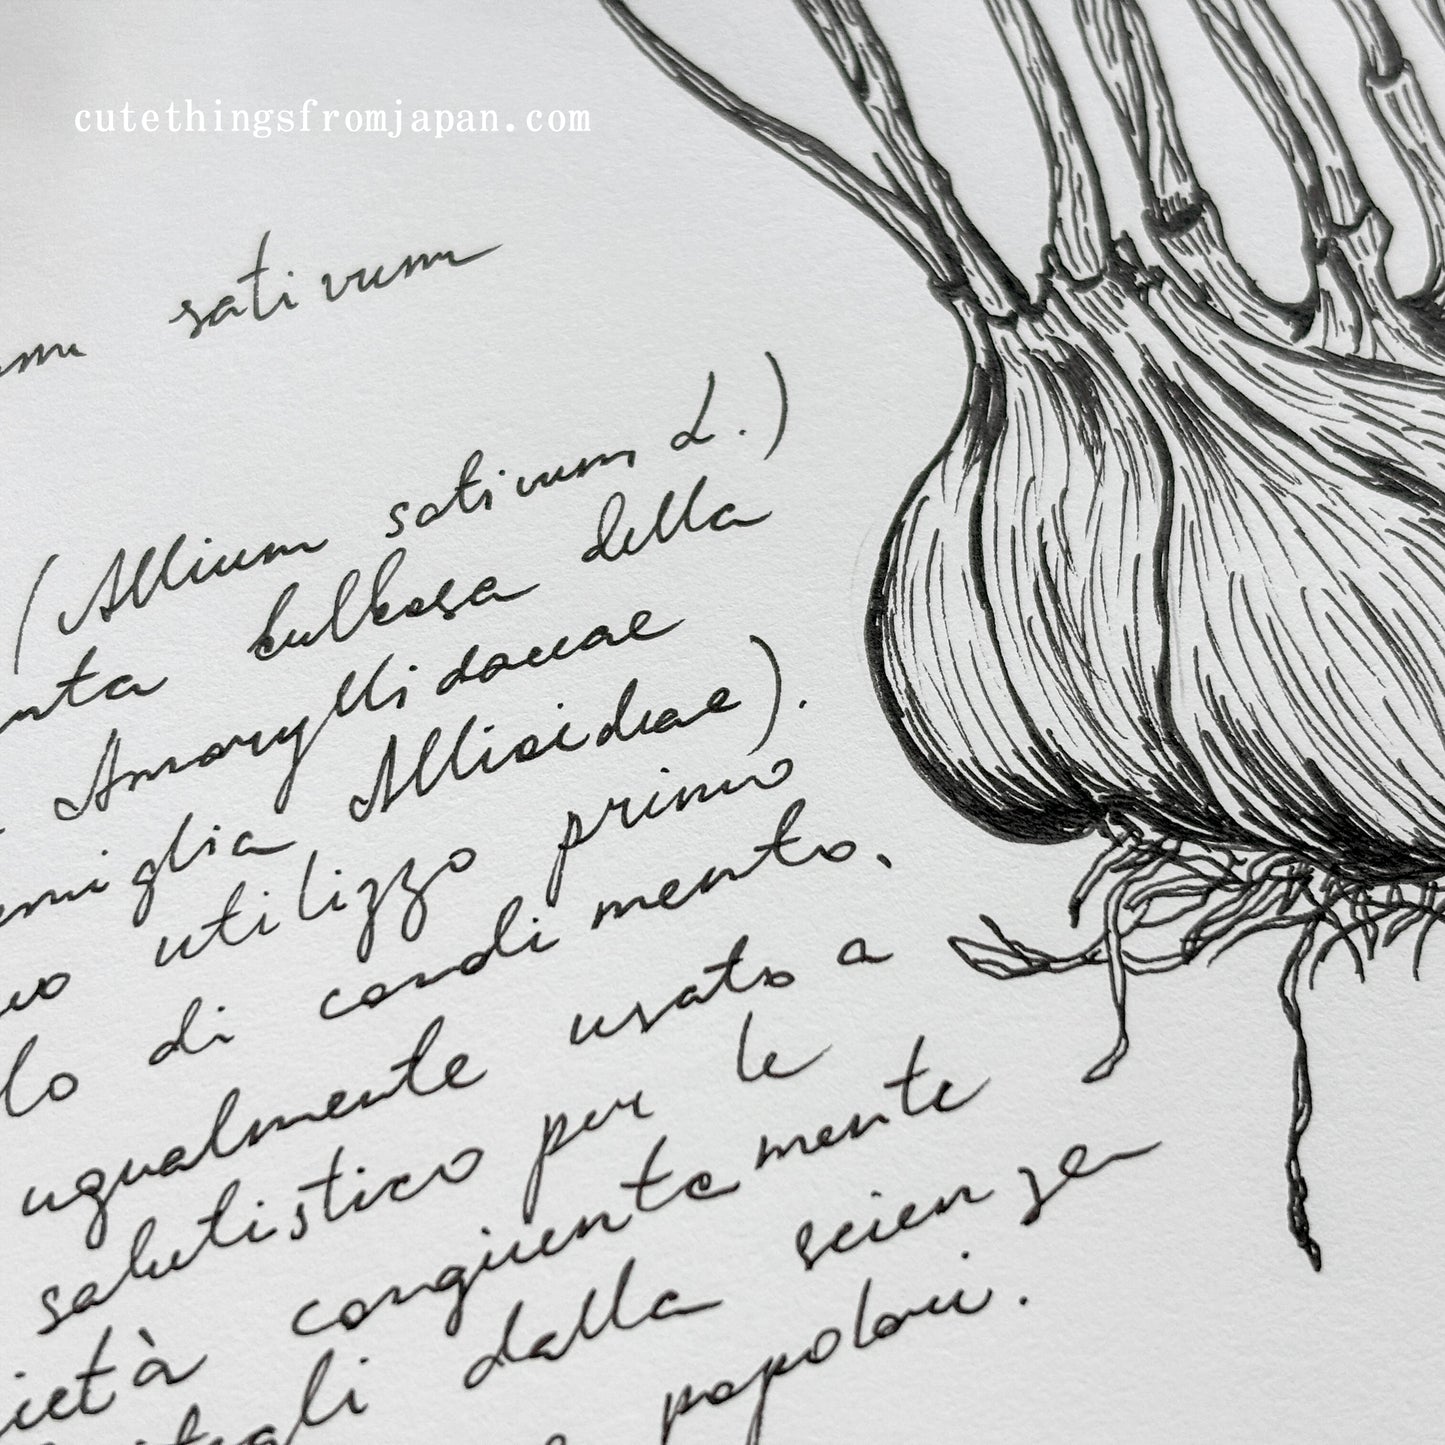 cutethingsfromjapan.com
sativum
(Allium sativum L.)
bulbosa della
Amaryllidaceae
Allioideae).
utilizzo primo
di condimento,
ugualmente usato a
salutistico per le
congiuntamente
dalla scienza
popolari.